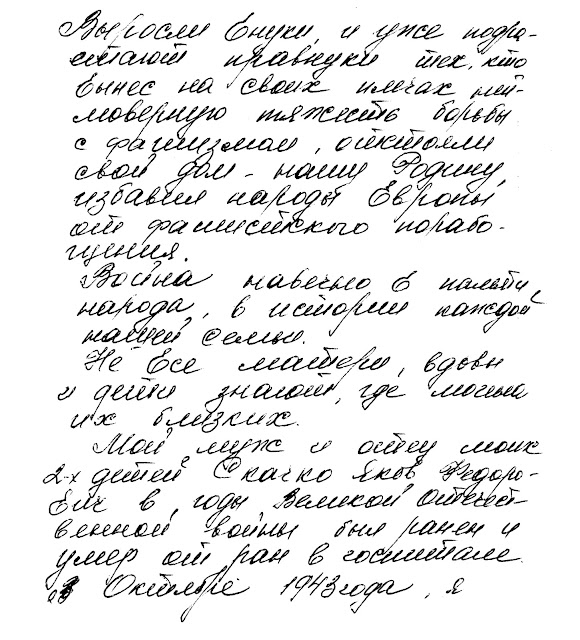 Выросли внуки, и уже подра-
стают правнуки тех, кто
вынес на своих плечах неи-
моверную тяжесть борьбы
с фашизмом, отстояли
свой дом - нашу Родину,
избавил народы Европы
от фашистского порабо-
щения.
Война навечно в памяти
народа, в истории каждой
нашей семьи.
Не все матери, вдовы
и дети знают, где могила
их близких.
Мой муж и отец моих
2-х детей, Скачко Яков Федоро-
вич в годы Великой Отечест-
венной войны был ранен и
умер от ран в госпитале
Октябре 1943 года, я